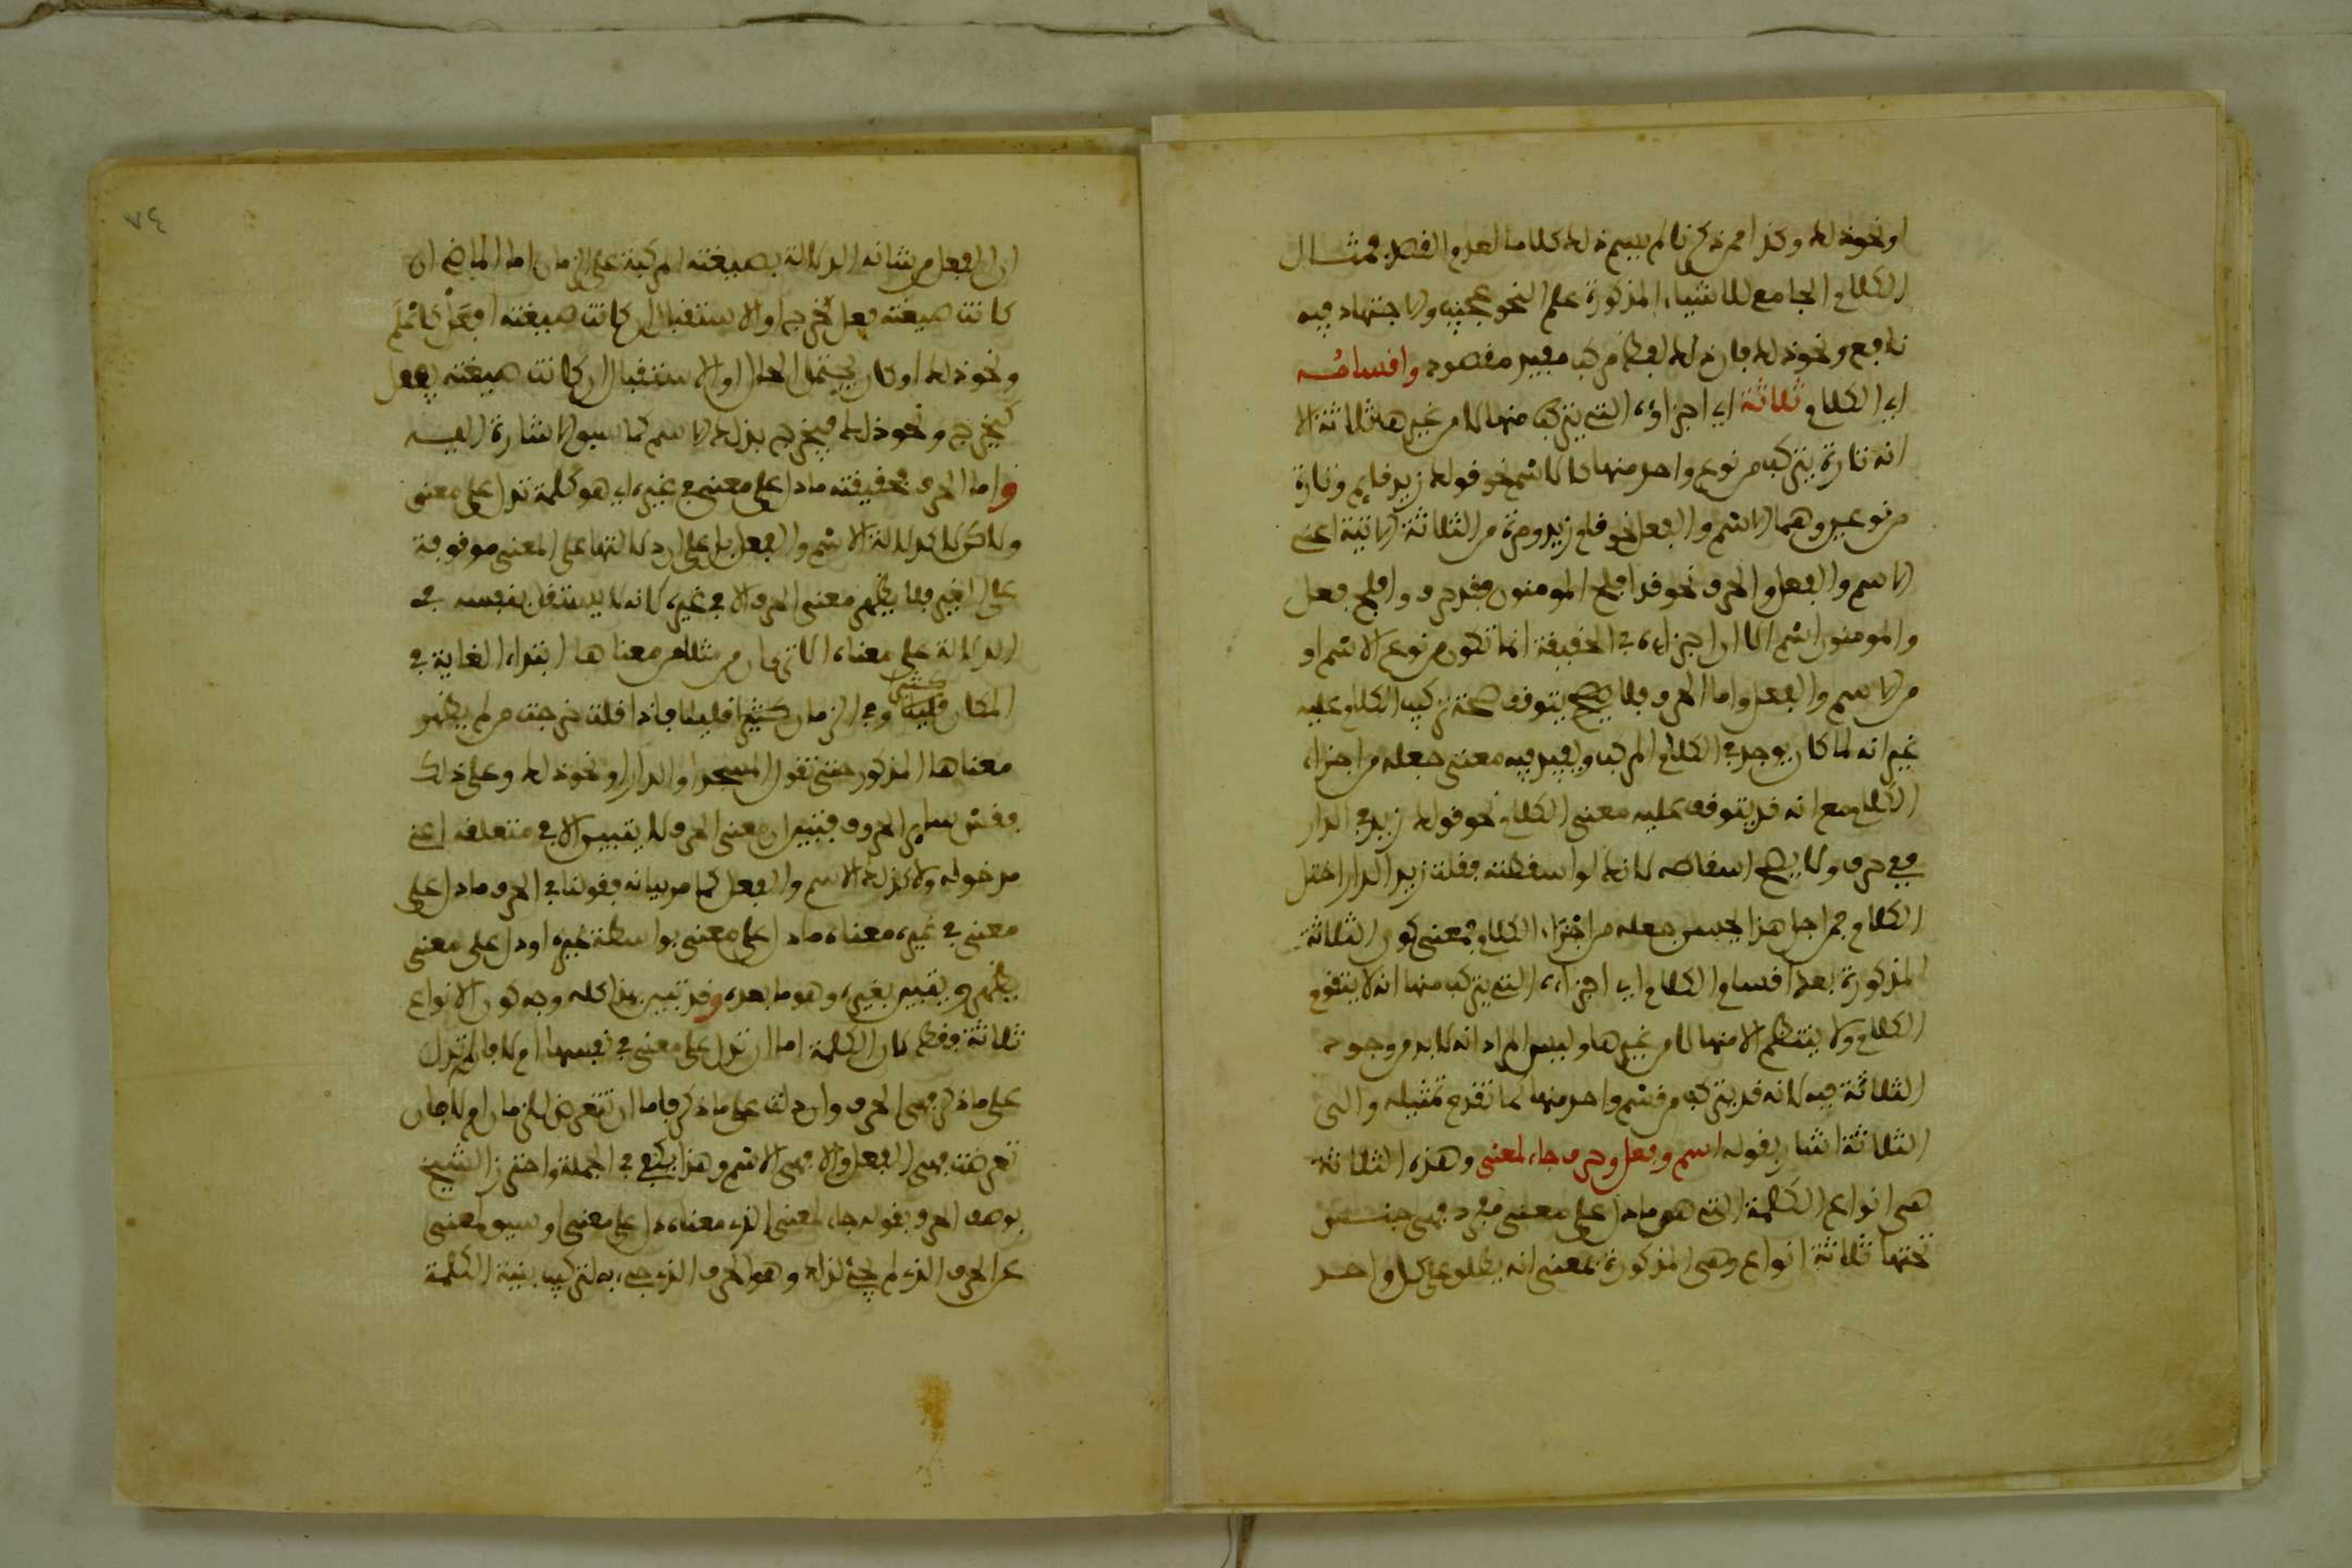 او نحو ذلك وكذا محمد كزنا لم يسم ذلك كلاما لعدم القصد فمثال
الكلام الجامع للاشياء المذكورة علم النحو عجيب والاجتهاد فيه
نافع ونحو ذلك فان ذلك لفظ مركب مفيد مقصود واقسامه
اي الكلام ثلاثة اي اجزاؤه التي يتركب منها لا من غيرها ثلاثة الا
انه تارة يتركب من نوع واحد منها كالاسم نحو قولك زيد قايم وتارة
من نوعين وهما الاسم والفعل نحو قام زيد ومرة من الثلاثة الاتية اعني
الاسم والفعل والحرف نحو قد افلح المومنون فقد حرف وافلح فعل
والمومنون اسم الا ان اجزاءه في الحقيقة انما تكون من نوع الاسم او
من الاسم والفعل واما الحرف فلا يتوقف صحة تركيب الكلام عليه
غير انه لما كان يوجد في الكلام المركب ويفيد فيه معنى جعله من اجزاء
الكلام مع انه قد يتوقف عليه معنى الكلام نحو قولك زيد في الدار
ففي حرف ولا يصح اسقاطه لانك لو اسقطته فقلت زيد الدار اختل
الكلام فمن اجل هذا يحسن جعله من اجزاء الكلام فمعنى كون الثلاثة
المذكورة بعد اقسام الكلام اي اجزاءه التي يتركب منها انه لا يتقوم
الكلام ولا ينتظم الا منها لا من غيرها وليس المراد انه لا بد من وجود
الثلاثة فيه لانه قد يتركب من قسم واحد منها كما تقدم تمثيله والى
الثلاثة اشار بقوله اسم وفعل وحرف جاء لمعنى وهذه الثلاثة
هي انواع الكلمة التي هو ما دل على معنى مفرد فهي جنس
تحتها ثلاثة انواع وهي المذكورة بمعنى انه يطلق على كل واحد
٧٤
ان الفعل من شانه الدلالة بصيغته المركبة على الزمان اما الماضي ان
كانت صيغته فعل كخرج او الاستقبال ان كانت صيغته افعل كاعلم
ونحو ذلك او كان يحتمل الحال والاستقبال ان كانت صيغته يفعل
كيخرج ونحو ذلك فيخرج بذلك الاسم كما سبق الاشارة اليه
واما الحرف فحقيقته ما دل على معنى في غيره اي هو كلمة تدل على معنى
ولاكن لا كدلالة الاسم والفعل بل على ان دلالتها على المعنى موقوفة
على الغير فلا يظهر معنى الحرف الا في غيره لانه لا يستقل بنفسه في
الدلالة على معناه الا ترى ان من مثلا من معناها ابتداء الغاية في
المكان كثيرا وفي الزمان قليلا فاذا قلت خرجت من لم يظهر
معناها المذكور حتى تقول المسجد او الدار او نحو ذلك وعلى ذلك
فقس سائر الحروف فتبين ان معنى الحرف لا يتبين الا في متعلقه اعني
مدخوله ولا كذلك الاسم والفعل كما مر بيانه فقولنا في الحرف ما دل على
معنى في غيره معناه ما دل على معنى بواسطة غيره او دل على معنى
يظهر ويتبين بغيره وهو ما بعده وقد تبين بهذا كله وجه كون الانواع
ثلاثة فقط لان الكلمة اما ان تدل على معنى في نفسها ام لا فان لم تدل
على ما ذكر فهي الحرف وان دلت على ما ذكر فاما ان تتعرض للزمان ام لا فان
تعرضت فهي الفعل والا فهي الاسم وهذا يكفي في الجملة واحترز الشيخ
بوصف الحرف بقوله جاء لمعنى الذي معناه دل على معنى وسيق لمعنى
عن الحرف الذي لم يجئ لذلك وهو الحرف الذي جيء به لتركيب بنية الكلمة